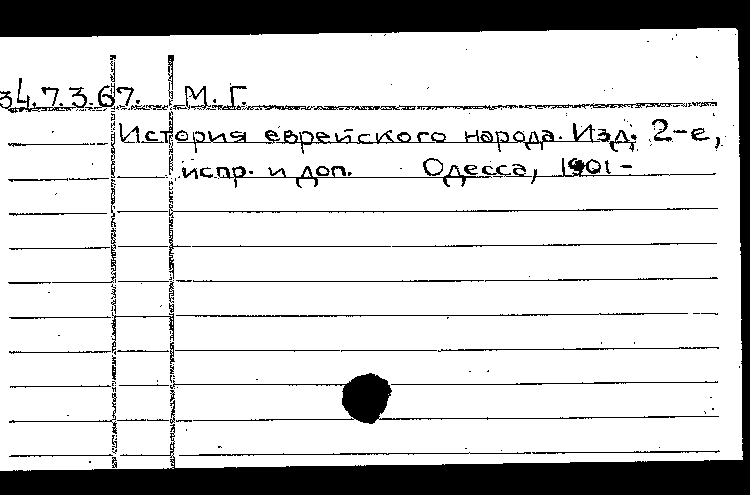 34.7.3.67. М. Г.
История еврейского народа. Изд. 2-е,
испр. и доп. Одесса, 1901-